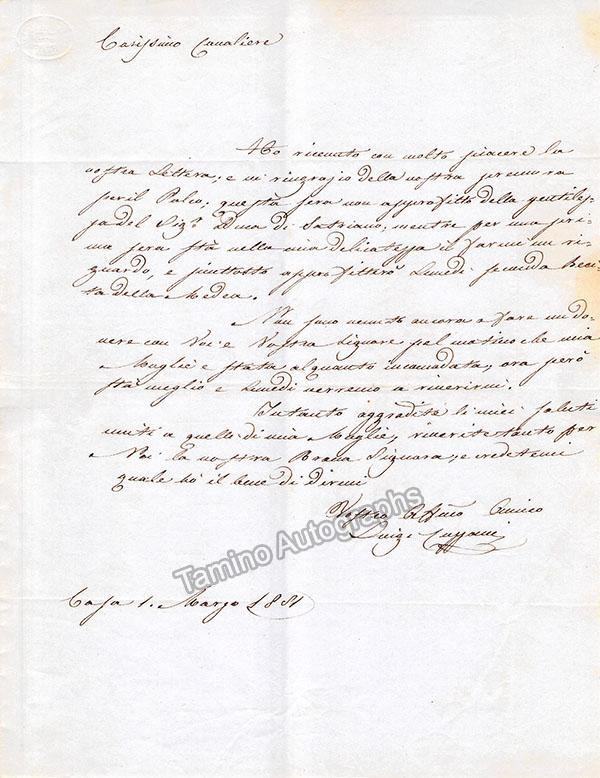 Carissimo Cavaliere
Ho ricevuto con molto piacere la
vostra Lettera; e vi ringrazio della vostra premura
per il Palco; questa sera non approfitto della gentilez-
za del Sigr. Duca di Satriano, mentre per una pri-
ma sera sta nella mia delicatezza il farmi un ri-
guardo, e piuttosto approfitterò Lunedì seconda Reci-
ta della Medea.
Non sono venuto ancora a fare un do-
vere con Voi e Vostra Signora pel motivo che mia
Moglie è stata alquanto incomodata, ora però
sta meglio e Lunedì verremo a riverirvi.
Intanto aggradite li miei saluti
uniti a quelli di mia Moglie, riverite tanto per
Noi la vostra Brava Signora, e credetemi
quale hò il bene di dirmi
Vostro Affmo Amico
Luigi
Tamino Autographs
Casa 1. Marzo 1851